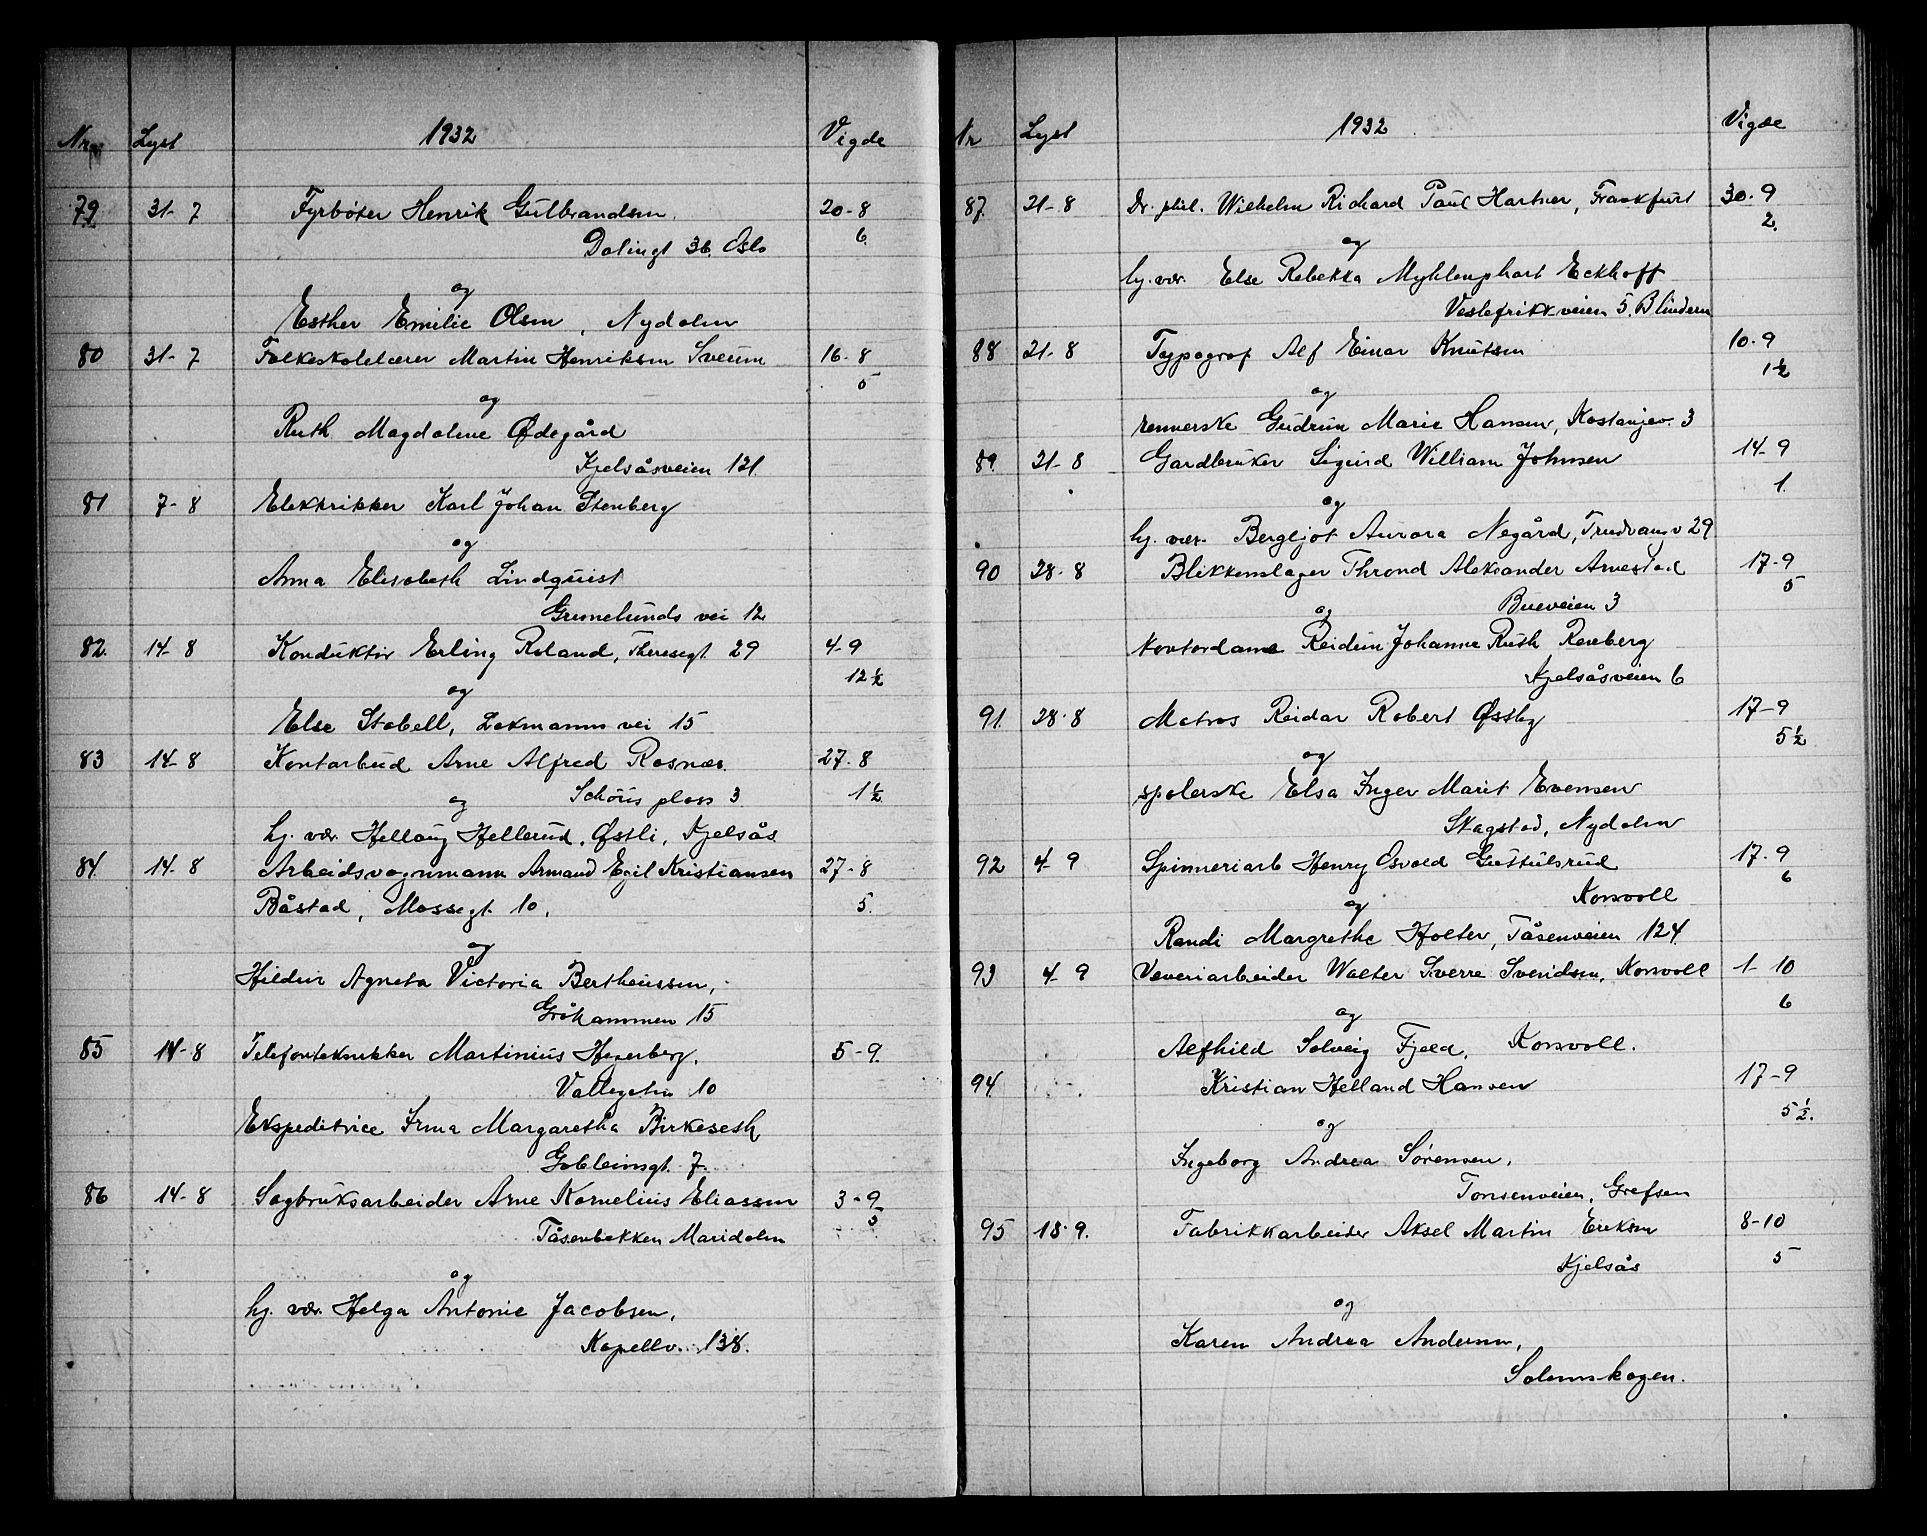 Nr. Lyst 1932 Vigde
79 31-7 Fyrbøter Henrik Gulbrandsen. 20-8
Dalingt 36. Oslo 6.
og
Esther Emilie Olsen, Nydalen
80 31-7 Folkeskolelærer Martin Henriksen Sveum 16-8
5
og
Ruth Magdalene Ødegård
Kjelsåsveien 121
81 7-8 Elektrikker Karl Johan Stenberg
og
Anna Elisabeth Lindquist
Grimelunds vei 12
82. 14-8 Konduktør Erling Roland, Theresegt. 29 4-9
12½
og
Else Stabell, Lokmanns vei 15
83 14-8 Kontorbud Arne Alfred Rosnæs. 27-8
og Schous plass 3. 1½
hj. vær. Hellaug Hellerud, Østli, Kjelsås
84. 14-8 Arbeidsvognmann Armand Egil Kristiansen 27-8
Båstad, Mossegt. 10. 5.
og
Hildur Agneta Victoria Bertheussen,
Gråkammen 15
85 14-8 Telefontekniker Martinius Hegerberg. 5-9.
Vallegaten 10
Ekspeditrice Irma Margaretha Birkeseth
Gobleinsgt. 7.
86 14-8 Sagbruksarbeider Arne Kornelius Eliassen 3-9
Tåsenbakken Maridalen 5
og
hj. vær. Helga Antonie Jacobsen,
Kapellv. 138.
Nr Lyst 1932 Vigde
87. 21-8 Dr. phil. Wilhelm Richard Paul Hartner, Frankfurt 30-9
2.
og
hj. vær. Else Rebekka Myhlenphort Eckhoff
Veslefrikkveien 5. Blindern
88 21-8 Typograf Alf Einar Knutsen 10-9
1½
og
rennerske Gudrun Marie Hansen, Kastanjev. 3
89. 21-8 Gardbruker Sigurd William Johnsen 14-9
1.
og
hj. vær. Bergljot Aurora Negård, Trudvangv 29
90 28-8 Blikkenslager Thrond Aleksander Arnestad 17-9
og Bueveien 3 5
Kontordame Reidun Johanne Ruth Renberg
Kjelsåsveien 6
91. 28-8 Matros Reidar Robert Østby 17-9
5½
og
spolerske Elsa Inger Marit Evensen
Skagstad, Nydalen
92 4-9 Spinneriarb Henry Osvald Guttulsrud 17-9
og Korsvoll 6
Randi Margrethe Holter, Tåsenveien 124.
93 4-9 Veveriarbeider Walter Sverre Svendsen, Korsvoll 1-10
6
og
Alfhild Solveig Fjeld, Korsvoll.
94. Kristian Helland Hansen 17-9
5½.
og
Ingeborg Andrea Sørensen,
Tonsenveien, Grefsen
95 18-9. Fabrikkarbeider Aksel Martin Eriksen 8-10
Kjelsås 5
og
Karen Andrea Andersen,
Solemskogen.